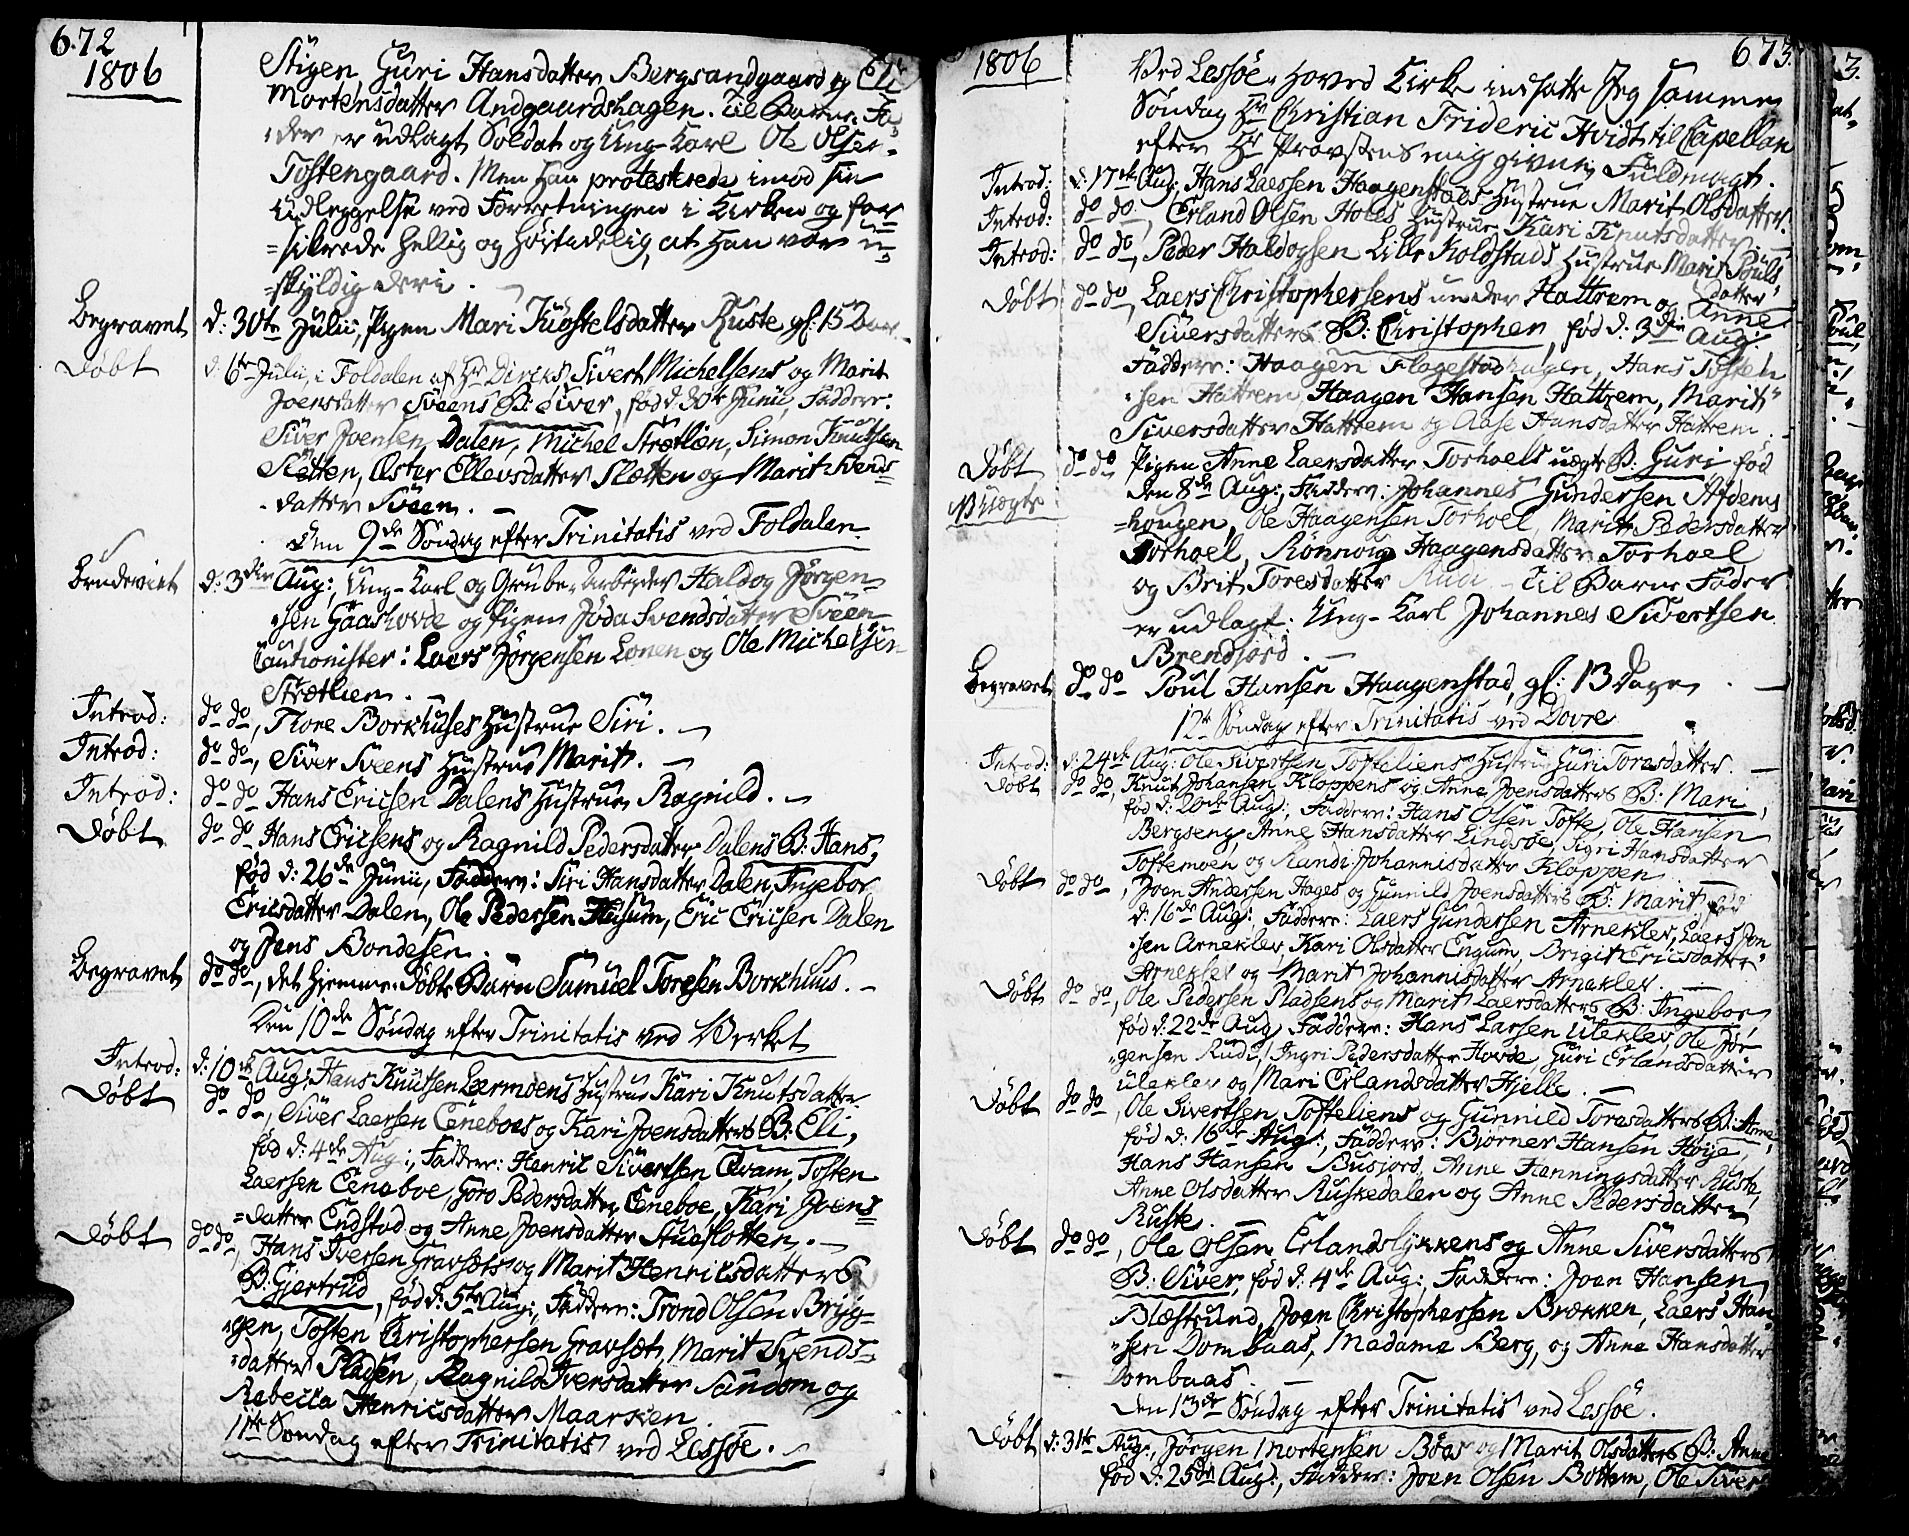 672
1806
Stigen, Guri Hansdatter Bergsandgaard og
Mortensdatter Andgaardshagen. Til Barne Fa-
der er udlagt Soldat og Ung-Karl Ole Olsen
Toftengaard. Men han protesterede imod sin
Udleggelse ved Forretningen i Kirken og for-
=sikrede hellig og høitidelig, at han var u-
=skyldig deri.
Begravet d: 30te Julii, Pigen Mari Ruste gl: 15
Døbt d: 6te Julii, i Foldalen af Hr Dircks Sivert Michelsens og Marit
Joensdatter Sveens B: Siver, fød d. 30te Junii, Faddere:
Siver Joensen Dalen, Michel Strætlien, Simon Knutsen
Sletten, Ester Ellevsdatter Sletten og Marit Svends-
datter Sveen. -
Den 9de Søndag efter Trinitatis ved Foldalen
Brudeviet d: 3die Aug:, Ung-Karl og Grube-Arbeyder Haldog Jørgen-
sen Gaashovde og Pigen Jøda Svendsdatter Sveen
Cautionister: Laers Jørgensen Lonen og Ole Michelsen
Strætlien.
Introd: do do, Tore Borkhuses Hustrue Siri. -
Introd: do do, Siver Sveens Hustrue Marit. -
Introd: do do Hans Ericsen Dalens Hustrue Ragnild. -
Døbt do do Hans Ericsens og Ragnild Pedersdatter Dalens B: Hans,
fød d: 26de Junii, Faddere: Siri Hansdatter Dalen, Ingebor
Ericsdatter Dalen, Ole Pedersen Husum, Eric Ericsen Dalen
og Jens Bondesen.
Begravet do do, det hjemme Døbte Barn Samuel Toresen Borkhuus. -
Den 10de Søndag efter Trinitatis ved Verket
Introd: d: 10de Aug: Hans Knutsen Lærmoens Hustrue Kari Knutsdatter
Døbt do do, Siver Laersen Ceneboes og Kari Joensdatters B: Eli,
fød d: 4de Aug:, Faddere: Henric Sivertsen Qvam, Tosten
Laersen Ceneboe, Goro Pedersdatter Ceneboe, Kari Joens=
=datter Endstad og Anne Joensdatter Stueflotten. -
Døbt do do, Hans Iversen Gravsets og Marit Henricsdatters
B: Gjertrud, fød d: 5te Aug:, Faddere: Trond Olsen Bryg-
gen, Tosten Christophersen Gravset, Marit Svends-
=datter Pladsen, Ragnild Iversdatter Sandom og
Rebecca Henricsdatter Maarstien.
11te Søndag efter Trinitatis ved Lessøe. -
1806
673.
Ved Lessøe Hoved Kirke indsatte Jeg samme
Søndag Hr Christian Frideric Hvidt til Capellan
efter Hr Provstens mig givne Fuldmagt.
Introd: d: 17de Aug: Hans Laersen Haagenstads Hustrue Marit Olsdatter.
Introd: do do, Erland Olsen Holes Hustrue Kari Knutsdatter
Introd: do do, Peder Haldogsen Lille Koldstads Hustrue Marit Pouls-
datter
Døbt do do, Laers Christophersens under Hattrem og Anne
Siversdatters B: Christopher, fød d: 3die Aug:
Faddere: Haagen Flagestadhagen, Hans Tosten
=sen Hattrem, Haagen Hansen Hattrem, Marit
Siversdatter Hattrem og Aase Hansdatter Hattrem. -
Døbt do do Pigen Anne Laersdatter Torhoels uægte B: Guri fød
Uægte den 8de Aug:, Faddere: Johannes Gundersen Afdems
=hougen, Ole Haagensen Torhoel, Marit Pedersdatter
Torhoel, Rönnoug Haagensdatter Torhoel
og Brit Toresdatter Rudi. Til Barne Fader
er udlagt: Ung-Karl Johannes Sivertsen
Brendjord. -
Begravet do do Poul Hansen Haagenstad, gl: 13 Dage. -
12te Søndag efter Trinitatis ved Dovre
Introd: d: 24de Aug: Ole Sivertsen Tofteliens Hustrue Guri Toresdatter. -
Døbt do do, Knut Johansen Kloppens og Anne Joensdatters B: Mari,
fød d: 20de Aug:, Faddere: Hans Olsen Tofte, Ole Hansen
Bergseng, Anne Hansdatter Lindsøe, Sigri Hansdatter
Toftemoen og Randi Johannisdatter Kloppen -
Døbt do do, Joen Andersen Hages og Gunnild Joensdatters B: Marit fød
d: 16de Aug:, Faddere: Laers Gundersen Arneklev, Laers Jon-
=sen Arneklev, Kari Olsdatter Engum, Brigit Ericsdatter
Arneklev og Marit Johannisdatter Arneklev. -
Døbt do do, Ole Pedersen Pladsens og Marit Laersdatters B: Ingebor
fød d: 22de Aug, Faddere: Hans Larsen Uleklev, Ole Jør-
=gensen Rudi, Ingri Pedersdatter Hovde, Guri Erlandsdatter
Uleklev og Mari Erlandsdatter Hjelle. -
Døbt do do, Ole Sivertsen Tofteliens og Gunnild Toresdatters B: Anne
fød d: 16de Aug:, Faddere: Bjørner Hansen Hoije,
Hans Hansen Busjord, Anne Henningsdatter Ruste,
Anne Olsdatter Ruskedalen og Anne Pedersdatter
Ruste. -
Døbt do do, Ole Olsen Erlandslykkens og Anne Siversdatters
B: Siver, fød d: 4de Aug:, Faddere: Joen Hansen
Blæstrud, Joen Christophersen Brekken, Laers Han-
=sen Dombaas, Madame Berg, og Anne Hansdatter
Dombaas. -
Den 13de Søndag efter Trinitatis ved Lessøe.
Døbt d: 31te Aug:, Jørgen Mortensen Böas og Marit Olsdatters B: Anne
fød d: 25de Aug:, Faddere: Joen Olsen Bottem, Ole Siver